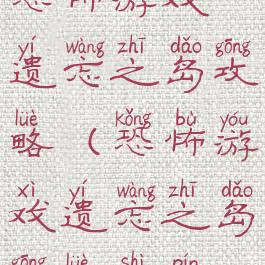 yí wàng zhī dǎo gōng
遗忘之岛攻
lüè kǒng bù yóu
略（恐怖游
xì yí wàng zhī dǎo
戏遗忘之岛
gōng lüè shì pín